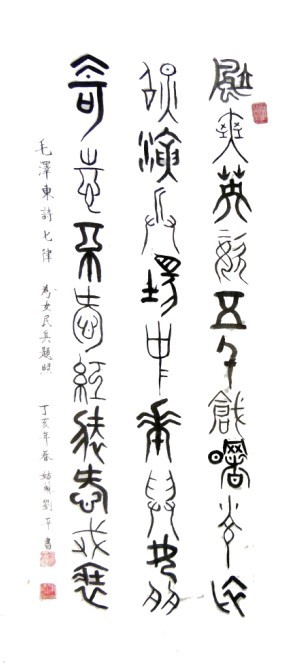 颯爽英姿五尺槍曙光初
照演兵場中華兒女多
奇志不愛紅裝愛武裝
毛澤東詩七律 為女民兵題照 丁亥年春 姑蘇劉平書